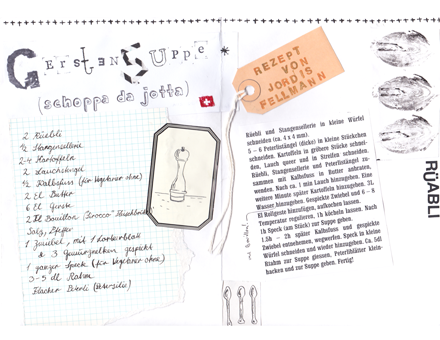 GERSTENSUPPE *
(schoppa da jotta)
2 Rüebli
½ Stangensellerie
2-4 Kartoffeln
2 Lauchstengel
½ Kalbsfuss (für Vegetarier ohne)
2 El Butter
6 El Gerste
2
Salz, Pfeffer
1 Zwiebel, mit 1 Lorbeerblatt
& 3 Gewürznelken gespickt
1 ganzer Speck (für Vegetarier ohne)
3-5 dl Rahm
Peterli (Petersilie)
REZEPT
VON
JORDIS
FELLMANN
Rüebli und Stangensellerie in kleine Würfel
schneiden (ca. 4 x 4 mm).
5 – 6 Peterlistängel (dicke) in kleine Stückchen
schneiden. Kartoffeln in gröbere Stücke schnei-
den, Lauch queer und in Streifen schneiden.
Stangensellerie und Peterlistängel zu-
sammen mit Kalbsfuss in Butter anbraten.
Nach ca. 1 min Lauch hinzufügen. Eine
weitere Minute später Kartoffeln hinzufügen. 2L
Wasser hinzugeben. Gespickte Zwiebel und 6 – 8
El Rollgerste hinzufügen, aufkochen lassen.
Temperatur regulieren, 1h köcheln lassen. Nach
1h Speck (am Stück) zur Suppe geben.
1.5h – 2h später Kalbsfuss und gespickte
Zwiebel entnehmen, wegwerfen. Speck in kleine
Würfel schneiden und wieder hinzugeben. Ca. 5dl
Rahm zur Suppe giessen, Peterliblätter klein-
hacken und zur Suppe geben. Fertig!
RÜABLI